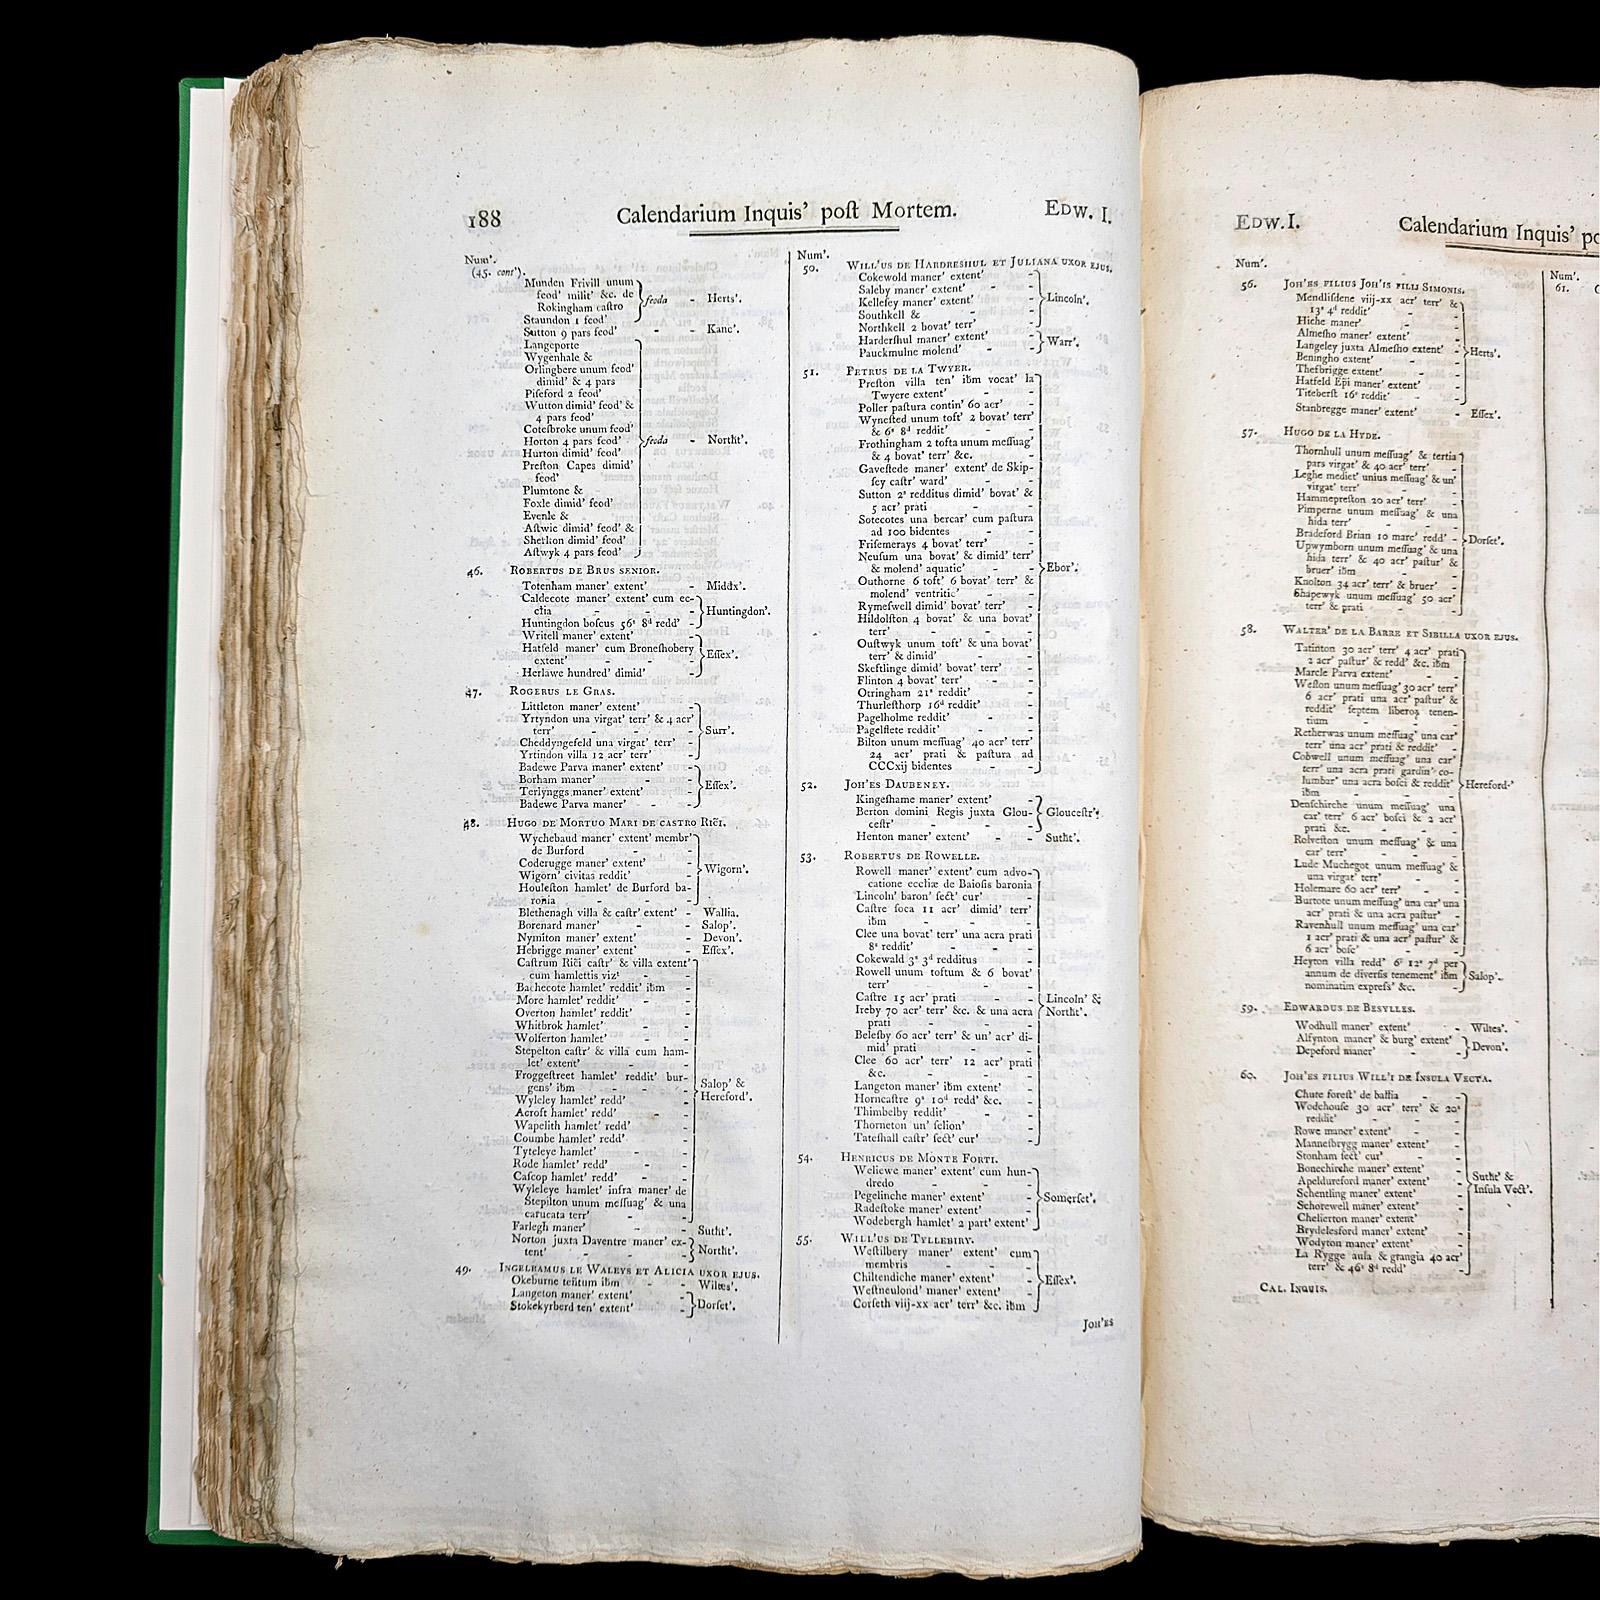 188
Calendarium Inquis' poſt Mortem.
Edw. I.
Num'.
(45. cont').
Munden Frivill unum
feod' milit' &c. de
Rokingham caſtro
Staundon 1 feod'
feoda - Herts'.
Sutton 9 pars feod' - - Kanc'.
Langeporte
Wygenhale &
Orlingbere unum feod'
dimid' & 4 pars
Piſeford 2 feod'
Wutton dimid' feod' &
4 pars feod'
Coteſbroke unum feod'
Horton 4 pars feod'
feoda - Northt'.
Hurton dimid' feod'
Preſton Capes dimid'
feod'
Plumtone &
Foxle dimid' feod'
Evenle &
Aſtwic dimid' feod' &
Shelton dimid' feod'
Aſtwyk 4 pars feod'
46. Robertus de Brus senior.
Totenham maner' extent' - Middx'.
Caldecote maner' extent' cum ec-
clia - - -
Huntingdon'.
Huntingdon boſcus 56s 8d redd' -
Writell maner' extent' -
Hatfeld maner' cum Broneſhobery
extent' - - -
Eſſex'.
Herlawe hundred' dimid' -
47. Rogerus le Gras.
Littleton maner' extent' -
Yrtyndon una virgat' terr' & 4 acr'
terr' - - -
Surr'.
Cheddyngefeld una virgat' terr' -
Yrtindon villa 12 acr' terr' -
Badewe Parva maner' extent' -
Borham maner' - -
Terlynggs maner' extent' -
Eſſex'.
Badewe Parva maner' - -
48. Hugo de Mortuo Mari de castro Rici.
Wychebaud maner' extent' membr'
de Burford - -
Coderugge maner' extent' -
Wigorn' civitas reddit' -
Wigorn'.
Houleſton hamlet' de Burford ba-
ronia - - -
Blethenagh villa & caſtr' extent' - Wallia.
Borenard maner' - - Salop'.
Nymiton maner' extent' - Devon'.
Hebrigge maner' extent' - Eſſex'.
Caſtrum Rici caſtr' & villa extent'
cum hamlettis vizt -
Bachecote hamlet' reddit' ibm -
More hamlet' reddit' - -
Overton hamlet' reddit' -
Whitbrok hamlet' - -
Wolferton hamlet' - -
Stepelton caſtr' & villa cum ham-
let' extent' - -
Froggeſtreet hamlet' reddit' bur-
gens' ibm - - -
Salop' &
Hereford'.
Wyleley hamlet' redd' -
Acroft hamlet' redd' - -
Wapelith hamlet' redd' -
Coumbe hamlet' redd' -
Tyteleye hamlet' - -
Rode hamlet' redd' - -
Caſcop hamlet' redd' - -
Wyleleye hamlet' infra maner' de
Stepilton unum meſſuag' & una
carucata terr' - -
Farlegh maner' - - Sutht'.
Norton juxta Daventre maner' ex-
tent' - - -
Northt'.
49. Ingelramus le Waleys et Alicia uxor ejus.
Okeburne tentum ibm - - Wiltes'.
Langeton maner' extent' -
Stokekyrberd ten' extent' -
Dorſet'.
Num'.
50. Will'us de Hardreshul et Juliana uxor ejus.
Cokewold maner' extent' -
Saleby maner' extent' -
Kelleſey maner' extent' -
Lincoln'.
Southkell & - -
Northkell 2 bovat' terr' -
Harderſhul maner' extent' -
Pauckmulne molend' - -
Warr'.
51. Petrus de la Twyer.
Preſton villa ten' ibm vocat' la
Twyere extent' - -
Poller paſtura contin' 60 acr' -
Wyneſted unum toft' 2 bovat' terr'
& 6s 8d reddit' - -
Frothingham 2 tofta unum meſſuag'
& 4 bovat' terr' &c. -
Gaveſtede maner' extent' de Skip-
ſey caſtr' ward' - -
Sutton 2s redditus dimid' bovat' &
5 acr' prati - -
Sotecotes una bercar' cum paſtura
ad 100 bidentes - -
Friſemerays 4 bovat' terr' -
Neuſum una bovat' & dimid' terr'
& molend' aquatic' - -
Ebor'.
Outhorne 6 toft' 6 bovat' terr' &
molend' ventritic' - -
Rymeſwell dimid' bovat' terr' -
Hildolſton 4 bovat' & una bovat'
terr' - - -
Ouſtwyk unum toft' & una bovat'
terr' & dimid' - -
Skeftlinge dimid' bovat' terr' -
Flinton 4 bovat' terr' - -
Otringham 21s reddit' -
Thurleſthorp 16d reddit' -
Pagelholme reddit' - -
Pagelflete reddit' - -
Bilton unum meſſuag' 40 acr' terr'
24 acr' prati & paſtura ad
CCCxij bidentes - -
52. Joh'es Daubeney.
Kingeſhame maner' extent' -
Berton domini Regis juxta Glou-
ceſtr' - - -
Glouceſtr'.
Henton maner' extent' - Sutht'.
53. Robertus de Rowelle.
Rowell maner' extent' cum advo-
catione eccliæ de Baioſis baronia
Lincoln' baron' ſect' cur' -
Caſtre ſoca 11 acr' dimid' terr'
ibm - - -
Clee una bovat' terr' una acra prati
8s reddit' - - -
Cokewald 3s 3d redditus -
Rowell unum toftum & 6 bovat'
terr' - - -
Caſtre 15 acr' prati - -
Lincoln' &
Northt'.
Ireby 70 acr' terr' &c. & una acra
prati - - -
Beleſby 60 acr' terr' & un' acr' di-
mid' prati - -
Clee 60 acr' terr' 12 acr' prati
&c. - - -
Langeton maner' ibm extent' -
Horncaſtre 9s 10d redd' &c. -
Thimbelby reddit' - -
Thorneton un' ſelion' -
Tateſhall caſtr' ſect' cur' -
54. Henricus de Monte Forti.
Weliewe maner' extent' cum hun-
dredo - - -
Pegelinche maner' extent' -
Somerſet'.
Radeſtoke maner' extent' -
Wodebergh hamlet' 2 part' extent'
55. Will'us de Tyllebiry.
Weſtilbery maner' extent' cum
membris - -
Chiltendiche maner' extent' -
Eſſex'.
Weſtneulond' maner' extent' -
Corſeth viij-xx acr' terr' &c. ibm
Joh'es
Edw. I.
Calendarium Inquis' po
Num'.
56. Joh'es filius Joh'is filij Simonis.
Mendliſdene viij-xx acr' terr' &
13s 4d reddit' - -
Hiche maner' - -
Almeſho maner' extent' -
Langeley juxta Almeſho extent' -
Herts'.
Beningho extent' - -
Theſbrigge extent' - -
Hatfeld Epi maner' extent' -
Titeberſt 16s reddit' - -
Stanbregge maner' extent' - Eſſex'.
57. Hugo de la Hyde.
Thornhull unum meſſuag' & tertia
pars virgat' & 40 acr' terr' -
Leghe mediet' unius meſſuag' & un'
virgat' terr' - -
Hammepreſton 20 acr' terr' -
Pimperne unum meſſuag' & una
hida terr' - -
Bradeford Brian 10 marc' redd' -
Dorſet'.
Upwymborn unum meſſuag' & una
hida terr' & 40 acr' paſtur' &
bruer' ibm - -
Knolton 34 acr' terr' & bruer' -
Shapewyk unum meſſuag' 50 acr'
terr' & prati - -
58. Walter' de la Barre et Sibilla uxor ejus.
Tatinton 30 acr' terr' 4 acr' prati
2 acr' paſtur' & redd' &c. ibm
Marcle Parva extent' - -
Weſton unum meſſuag' 30 acr' terr'
6 acr' prati una acr' paſtur' &
reddit' ſeptem liberoꝝ tenen-
tium - - -
Retherwas unum meſſuag' una car'
terr' una acr' prati & reddit' -
Cobwell unum meſſuag' una car'
terr' una acra prati gardin' co-
lumbar' una acra boſci & reddit'
ibm - - -
Hereford'
Denſchirche unum meſſuag' una
car' terr' 6 acr' boſci & 2 acr'
prati &c. - - -
Rolveſton unum meſſuag' & una
car' terr' - -
Lude Muchegot unum meſſuag' &
una virgat' terr' - -
Holemare 60 acr' terr' - -
Burtote unum meſſuag' una car' una
acr' prati & una acra paſtur' -
Ravenhull unum meſſuag' una car'
1 acr' prati & una acr' paſtur' &
6 acr' boſc' - -
Heyton villa redd' 6s 12s 7d per
annum de diverſis tenement' ibm
nominatim expreſs' &c. -
Salop'.
59. Edwardus de Besylles.
Wodhull maner' extent' - Wiltes'.
Alfynton maner' & burg' extent'
Depeford maner' - -
Devon'.
60. Joh'es filius Will'i de Insula Vecta.
Chute foreſt' de ballia - -
Wodehouſe 30 acr' terr' & 20s
reddit' - - -
Rowe maner' extent' - -
Manneſbrygg maner' extent' -
Stonham ſect' cur' - -
Bonechirche maner' extent' -
Apeldureford maner' extent' -
Sutht' &
Inſula Vect'.
Schentling maner' extent' -
Schotewell maner' extent' -
Chelierton maner' extent' -
Brydelesford maner' extent' -
Wodyton maner' extent' -
La Rygge aula & grangia 40 acr'
terr' & 46s 8d redd' -
Cal. Inquis.
Num'.
61.